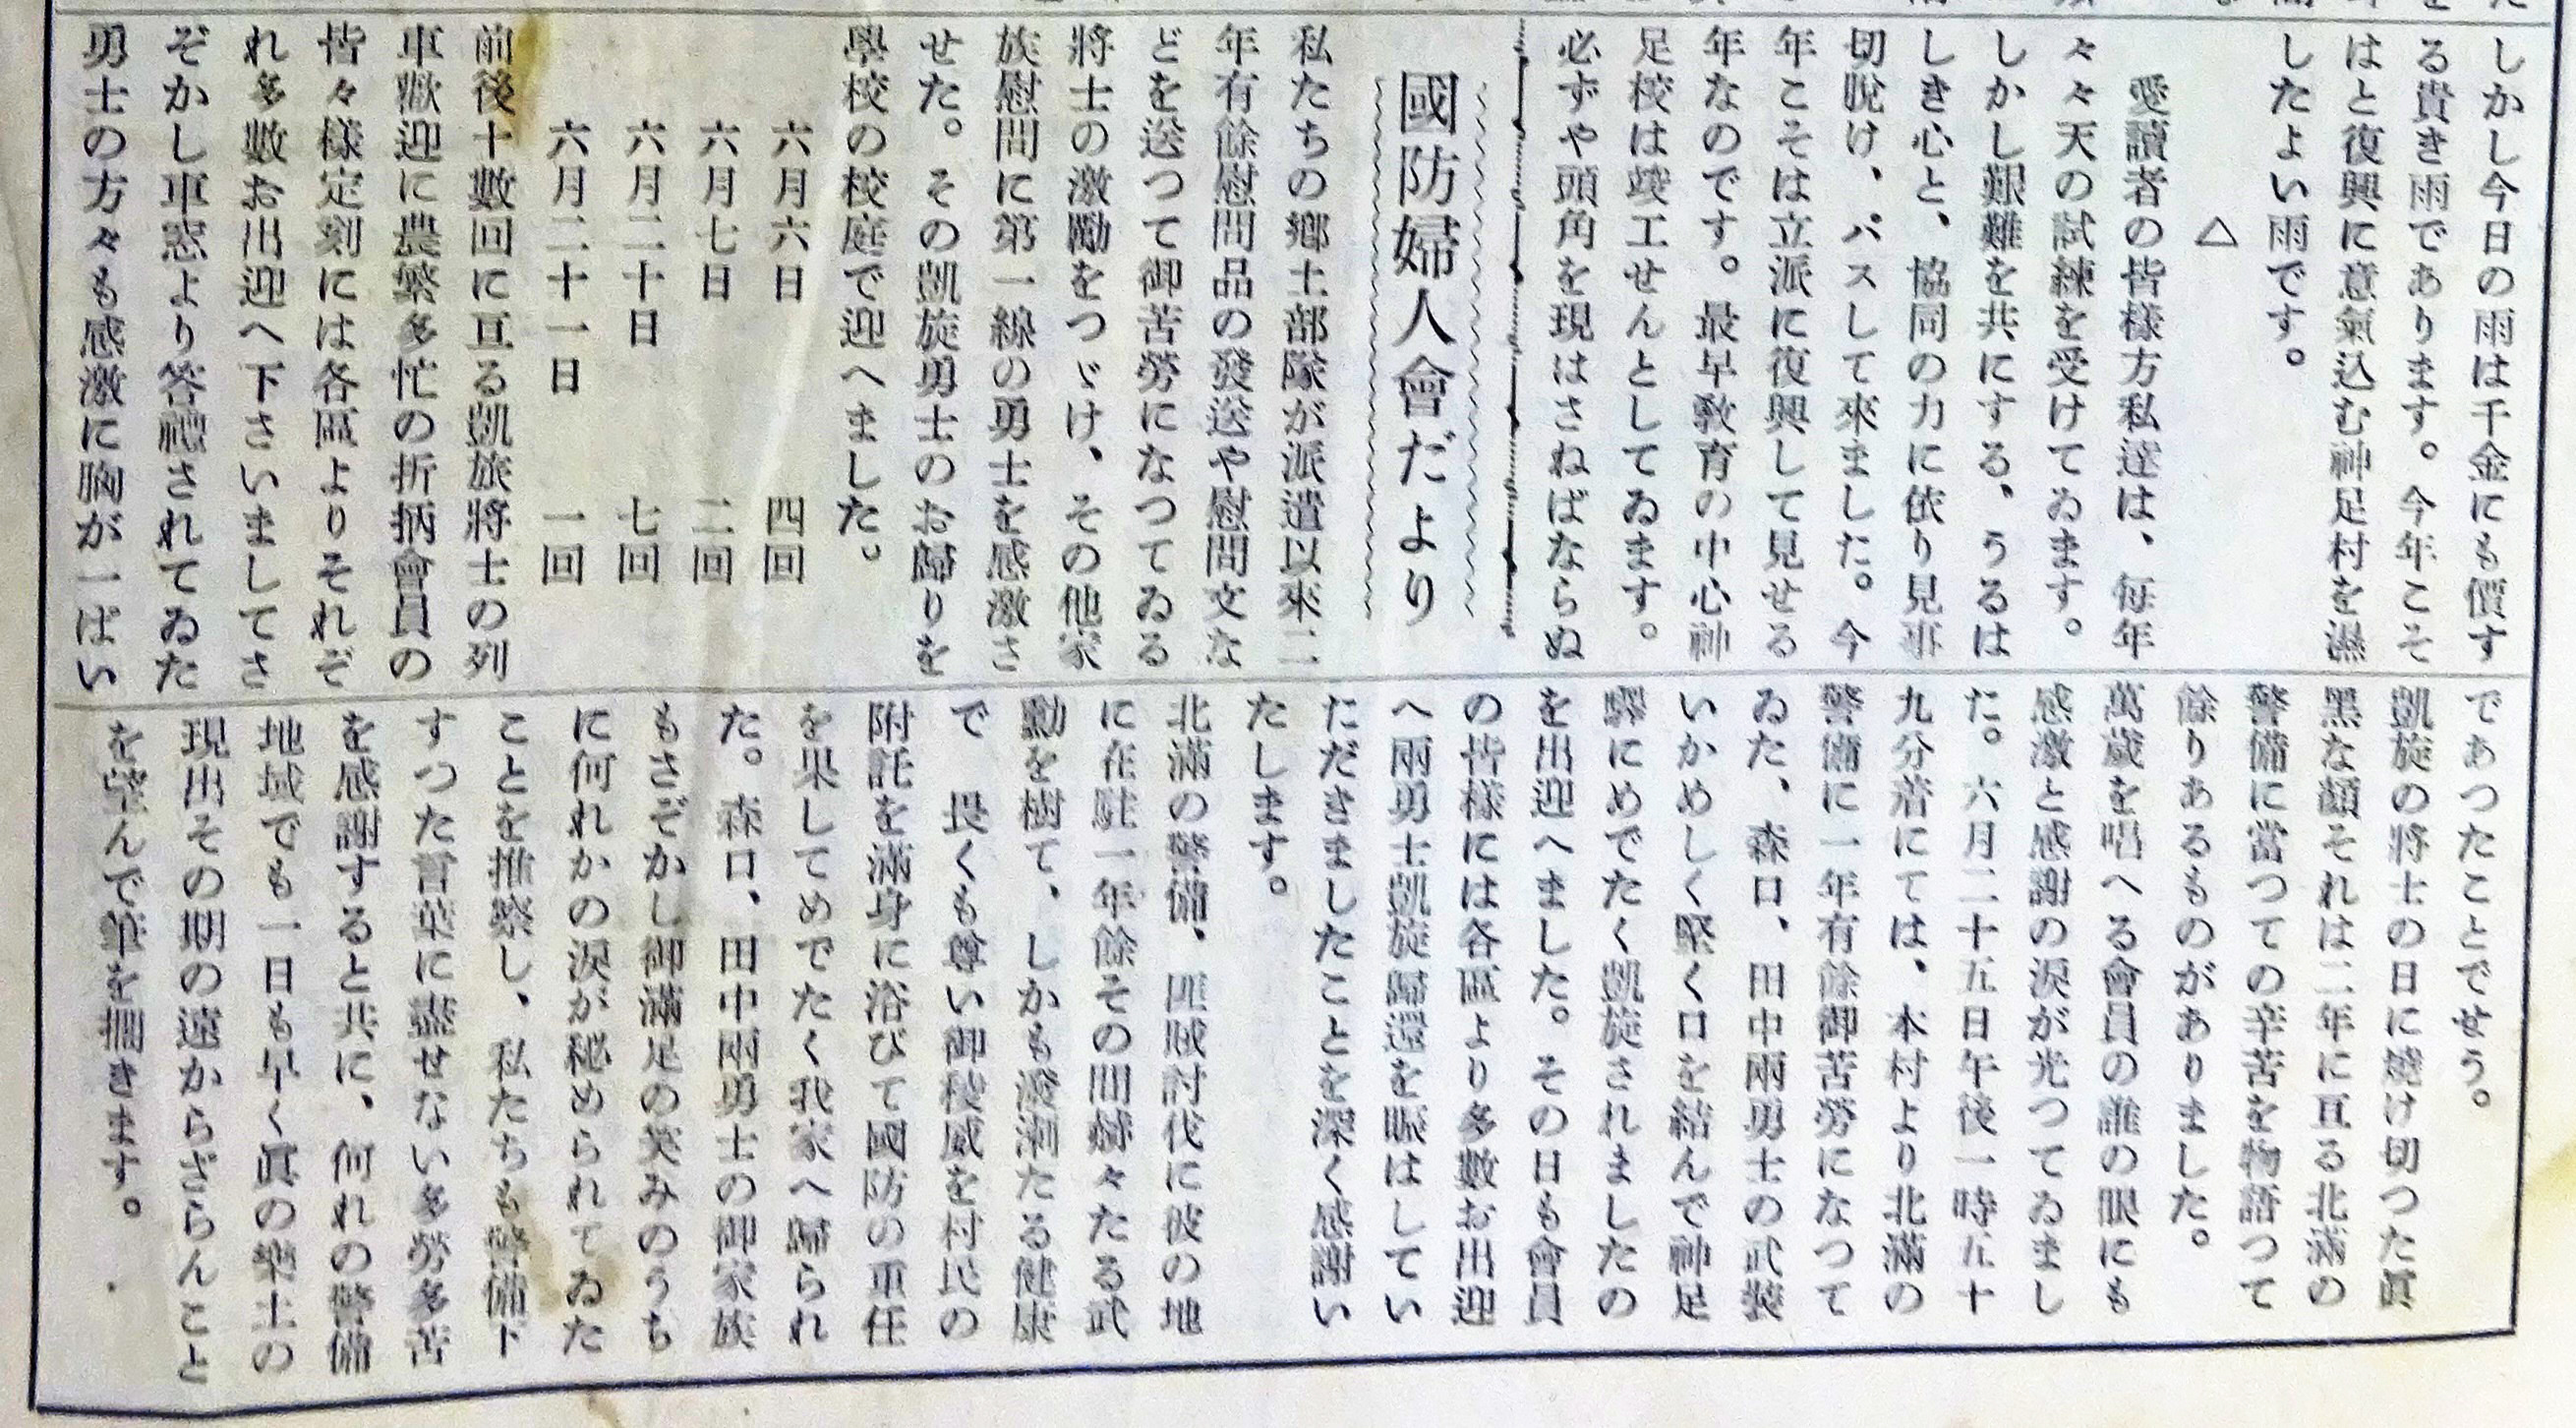 しかし今日の雨は千金にも價す
る貴き雨であります。今年こそ
はと復興に意氣込む神足村を濕
したよい雨です。
△
愛讀者の皆様方私達は、毎年
々々天の試練を受けてゐます。
しかし艱難を共にする、うるは
しき心と、協同の力に依り見事
切脱け、パスして來ました。今
年こそは立派に復興して見せる
年なのです。最早敎育の中心神
足校は竣工せんとしてゐます。
必ずや頭角を現はさねばならぬ
國防婦人會だより
私たちの鄕土部隊が派遣以來二
年有餘慰問品の發送や慰問文な
どを送つて御苦勞になつてゐる
將士の激勵をつゞけ、その他家
族慰問に第一線の勇士を感激さ
せた。その凱旋勇士のお歸りを
學校の校庭で迎へました。
六月六日 四回
六月七日 二回
六月二十日 七回
六月二十一日 一回
前後十數回に亙る凱旅將士の列
車歡迎に農繁多忙の折柄會員の
皆々樣定刻には各區よりそれぞ
れ多數お出迎へ下さいましてさ
ぞかし車窓より答禮されてゐた
勇士の方々も感激に胸が一ぱい
であつたことでせう。
凱旋の將士の日に燒け切つた眞
黑な顏それは二年に亙る北滿の
警備に當つての辛苦を物語つて
餘りあるものがありました。
萬歲を唱へる會員の誰の眼にも
感激と感謝の淚が光つてゐまし
た。六月二十五日午後一時五十
九分着にては、本村より北滿の
警備に一年有餘御苦勞になつて
ゐた、森口、田中兩勇士の武裝
いかめしく堅く口を結んで神足
驛にめでたく凱旋されましたの
を出迎へました。その日も會員
の皆樣には各區より多數お出迎
へ兩勇士凱旋歸還を賑はしてい
ただきましたことを深く感謝い
たします。
北滿の警備、匪賊討伐に彼の地
に在駐一年餘その間赫々たる武
動を樹て、しかも潑溂たる健康
で 畏くも尊い御稜威を村民の
附託を滿身に浴びて國防の重任
を果してめでたく我家へ歸られ
た。森口、田中兩勇士の御家族
もさぞかし御滿足の笑みのうち
に何れかの淚が秘められてゐた
ことを推察し、私たちも警備下
すつた言葉に盡せない多勞多苦
を感謝すると共に、何れの警備
地域でも一日も早く眞の樂土の
現出その期の遠からざらんこと
を望んで筆を擱きます。